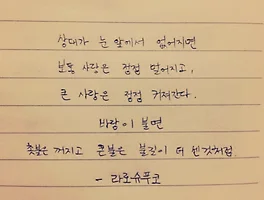 상대가 눈 앞에서 없어지면
보통 사랑은 점점 멀어지고,
큰 사랑은 점점 커져간다.
바람이 불면
촛불은 꺼지고 큰불은 불길이 더 센것처럼
- 라로슈푸코